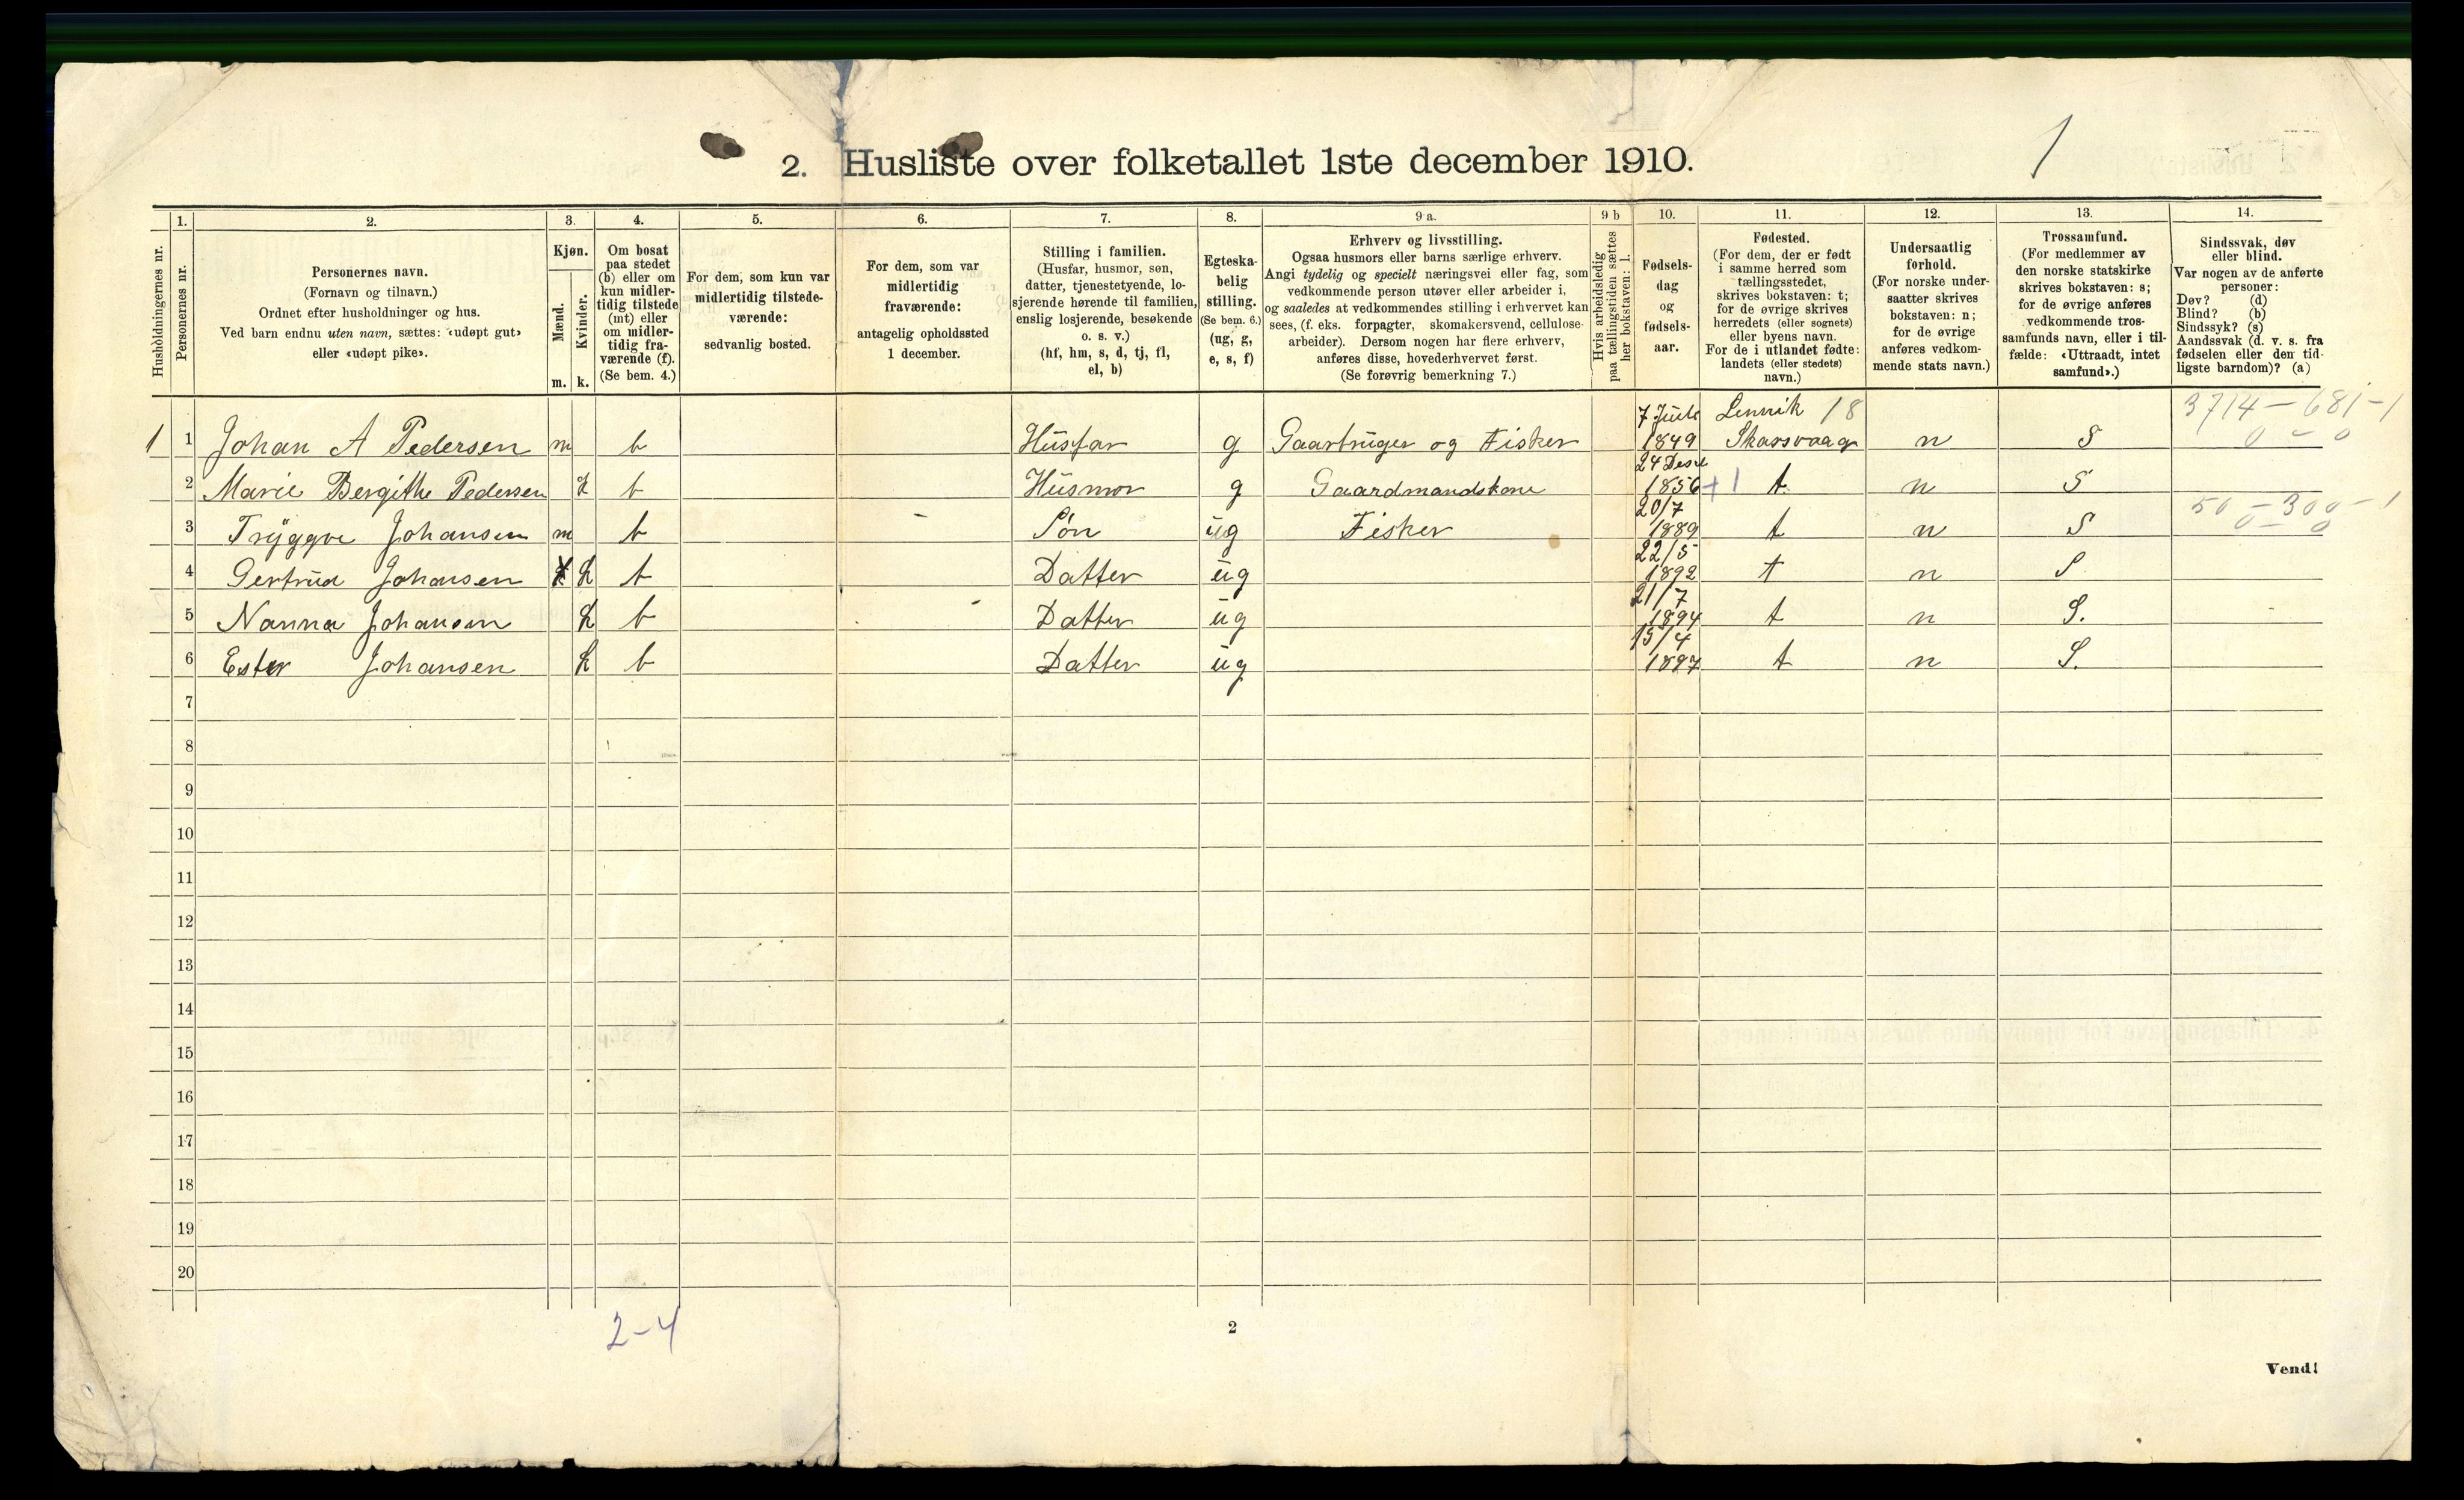 2. Husliste over folketallet 1ste december 1910.
1
Husholdningernes nr.
1.
Personernes nr.
2.
Personernes navn.
(Fornavn og tilnavn.)
Ordnet efter husholdninger og hus.
Ved barn endnu uten navn, sættes: «udøpt gut»
eller «udøpt pike».
3.
Kjøn.
Mænd.
Kvinder.
m. k.
4.
Om bosat
paa stedet
(b) eller om
kun midler-
tidig tilstede
(mt) eller
om midler-
tidig fra-
værende (f).
(Se bem. 4.)
5.
For dem, som kun var
midlertidig tilstede-
værende:
sedvanlig bosted.
6.
For dem, som var
midlertidig
fraværende:
antagelig opholdssted
1 december.
7.
Stilling i familien.
(Husfar, husmor, søn,
datter, tjenestetyende, lo-
sjerende hørende til familien,
enslig losjerende, besøkende
o. s. v.)
(hf, hm, s, d, tj, fl,
el, b)
8.
Egteska-
belig
stilling.
(Se bem. 6.)
(ug, g,
e, s, f)
9 a.
Erhverv og livsstilling.
Ogsaa husmors eller barns særlige erhverv.
Angi tydelig og specielt næringsvei eller fag, som
vedkommende person utøver eller arbeider i,
og saaledes at vedkommendes stilling i erhvervet kan
sees, (f. eks. forpagter, skomakersvend, cellulose-
arbeider). Dersom nogen har flere erhverv,
anføres disse, hovederhvervet først.
(Se forøvrig bemerkning 7.)
9 b
Hvis arbeidsledig
paa tællingstiden sættes
her bokstaven: l.
10.
Fødsels-
dag
og
fødsels-
aar.
11.
Fødested.
(For dem, der er født
i samme herred som
tællingsstedet,
skrives bokstaven: t;
for de øvrige skrives
herredets (eller sognets)
eller byens navn.
For de i utlandet fødte:
landets (eller stedets)
navn.)
12.
Undersaatlig
forhold.
(For norske under-
saatter skrives
bokstaven: n;
for de øvrige
anføres vedkom-
mende stats navn.)
13.
Trossamfund.
(For medlemmer av
den norske statskirke
skrives bokstaven: s;
for de øvrige anføres
vedkommende tros-
samfunds navn, eller i til-
fælde: «Uttraadt, intet
samfund».)
14.
Sindssvak, døv
eller blind.
Var nogen av de anførte
personer:
Døv? (d)
Blind? (b)
Sindssyk? (s)
Aandssvak (d. v. s. fra
fødselen eller den tid-
ligste barndom)? (a)
3714 - 681 - 1
0 - 0
7 Juli 18
1 1 Johan A Pedersen m b Husfar g Gaarbruger og Fisker 1849 Skaasvaag n S
24 Dese
2 Marie Bergithe Pedersen k b Husmor g Gaardmandskone 1856 +1 t n S
20/7 50 - 300 - 1
3 Tryggve Johansen m b Søn ug Fisker 1889 t n S 0 - 0
22/5
4 Gertrud Johansen k b Datter ug 1892 t n S
21/7
5 Nanna Johansen k b Datter ug 1894 t n S.
15/4
6 Ester Johansen k b Datter ug 1897 t n S.
7
8
9
10
11
12
13
14
15
16
17
18
19
20
2-4
2
Vend!